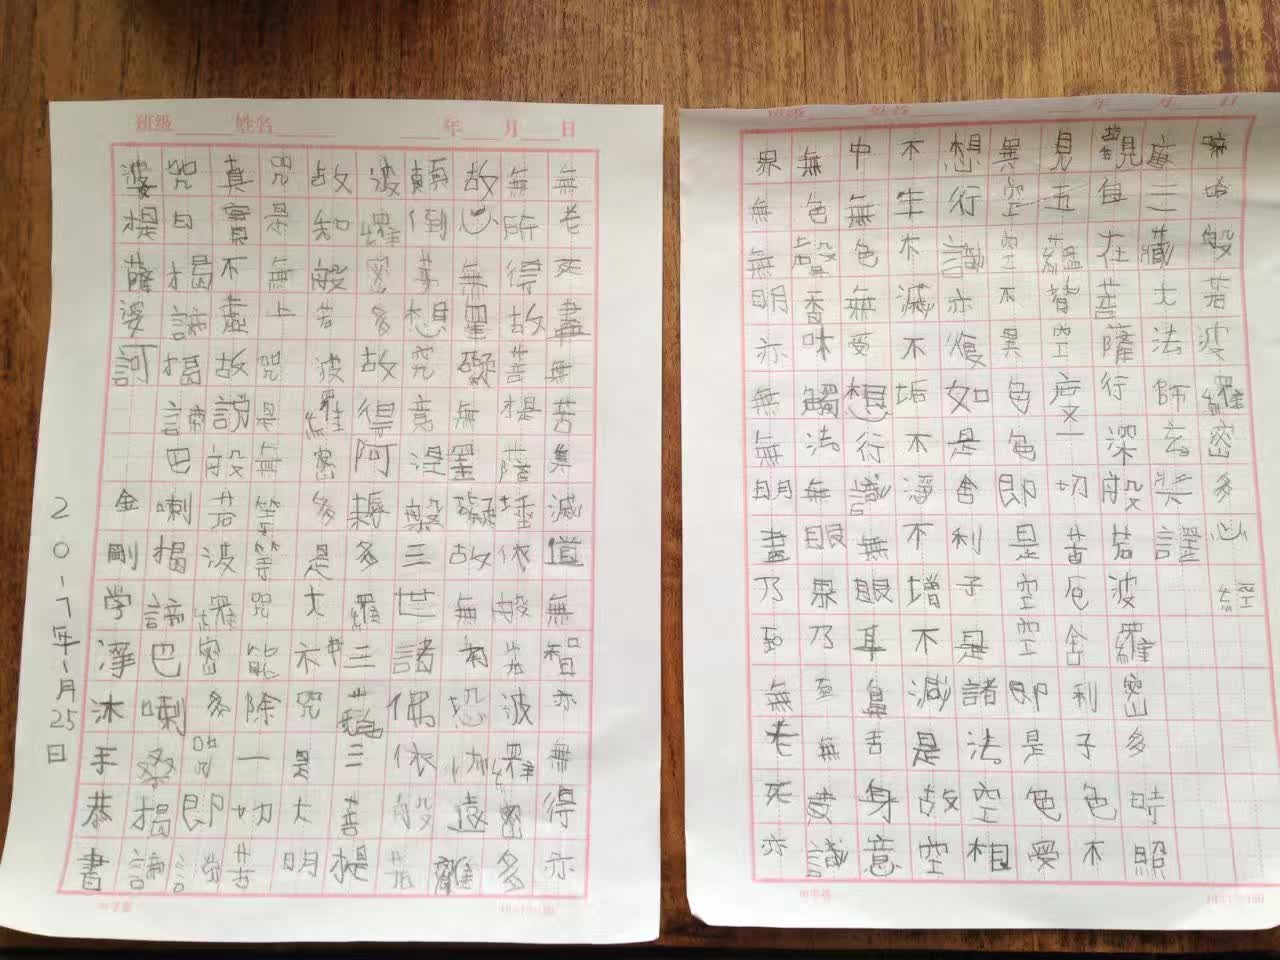 嘛哈般若波羅密多心經
唐三藏大法師玄奘譯
觀自在菩薩行深般若波羅密多時照
見五蘊皆空度一切苦厄舍利子色不
異空空不異色色即是空空即是色受
想行識亦復如是舍利子是諸法空相
不生不滅不垢不淨不增不減是故空
中無色無受想行識無眼耳鼻舌身意
無色聲香味觸法無眼界乃至無意識
界無無明亦無無明盡乃至無老死亦
班级 姓名 年 月 日
無老死盡無苦集滅道無智亦無得亦
無所得故菩提薩埵依般若波羅密多
故心無罣礙無罣礙故無有恐怖遠離
顛倒夢想究竟涅槃三世諸偶依般若
波羅密多故得阿耨多羅三藐三菩提
故知般若波羅密多是大神咒是大明
咒是無上咒是無等等咒能除一切苦
真實不虛故說般若波羅密多咒即說
咒曰揭諦揭諦巴喇揭諦巴喇桑揭諦
婆提薩婆訶 金剛学淨沐手恭書
2017年1月25日